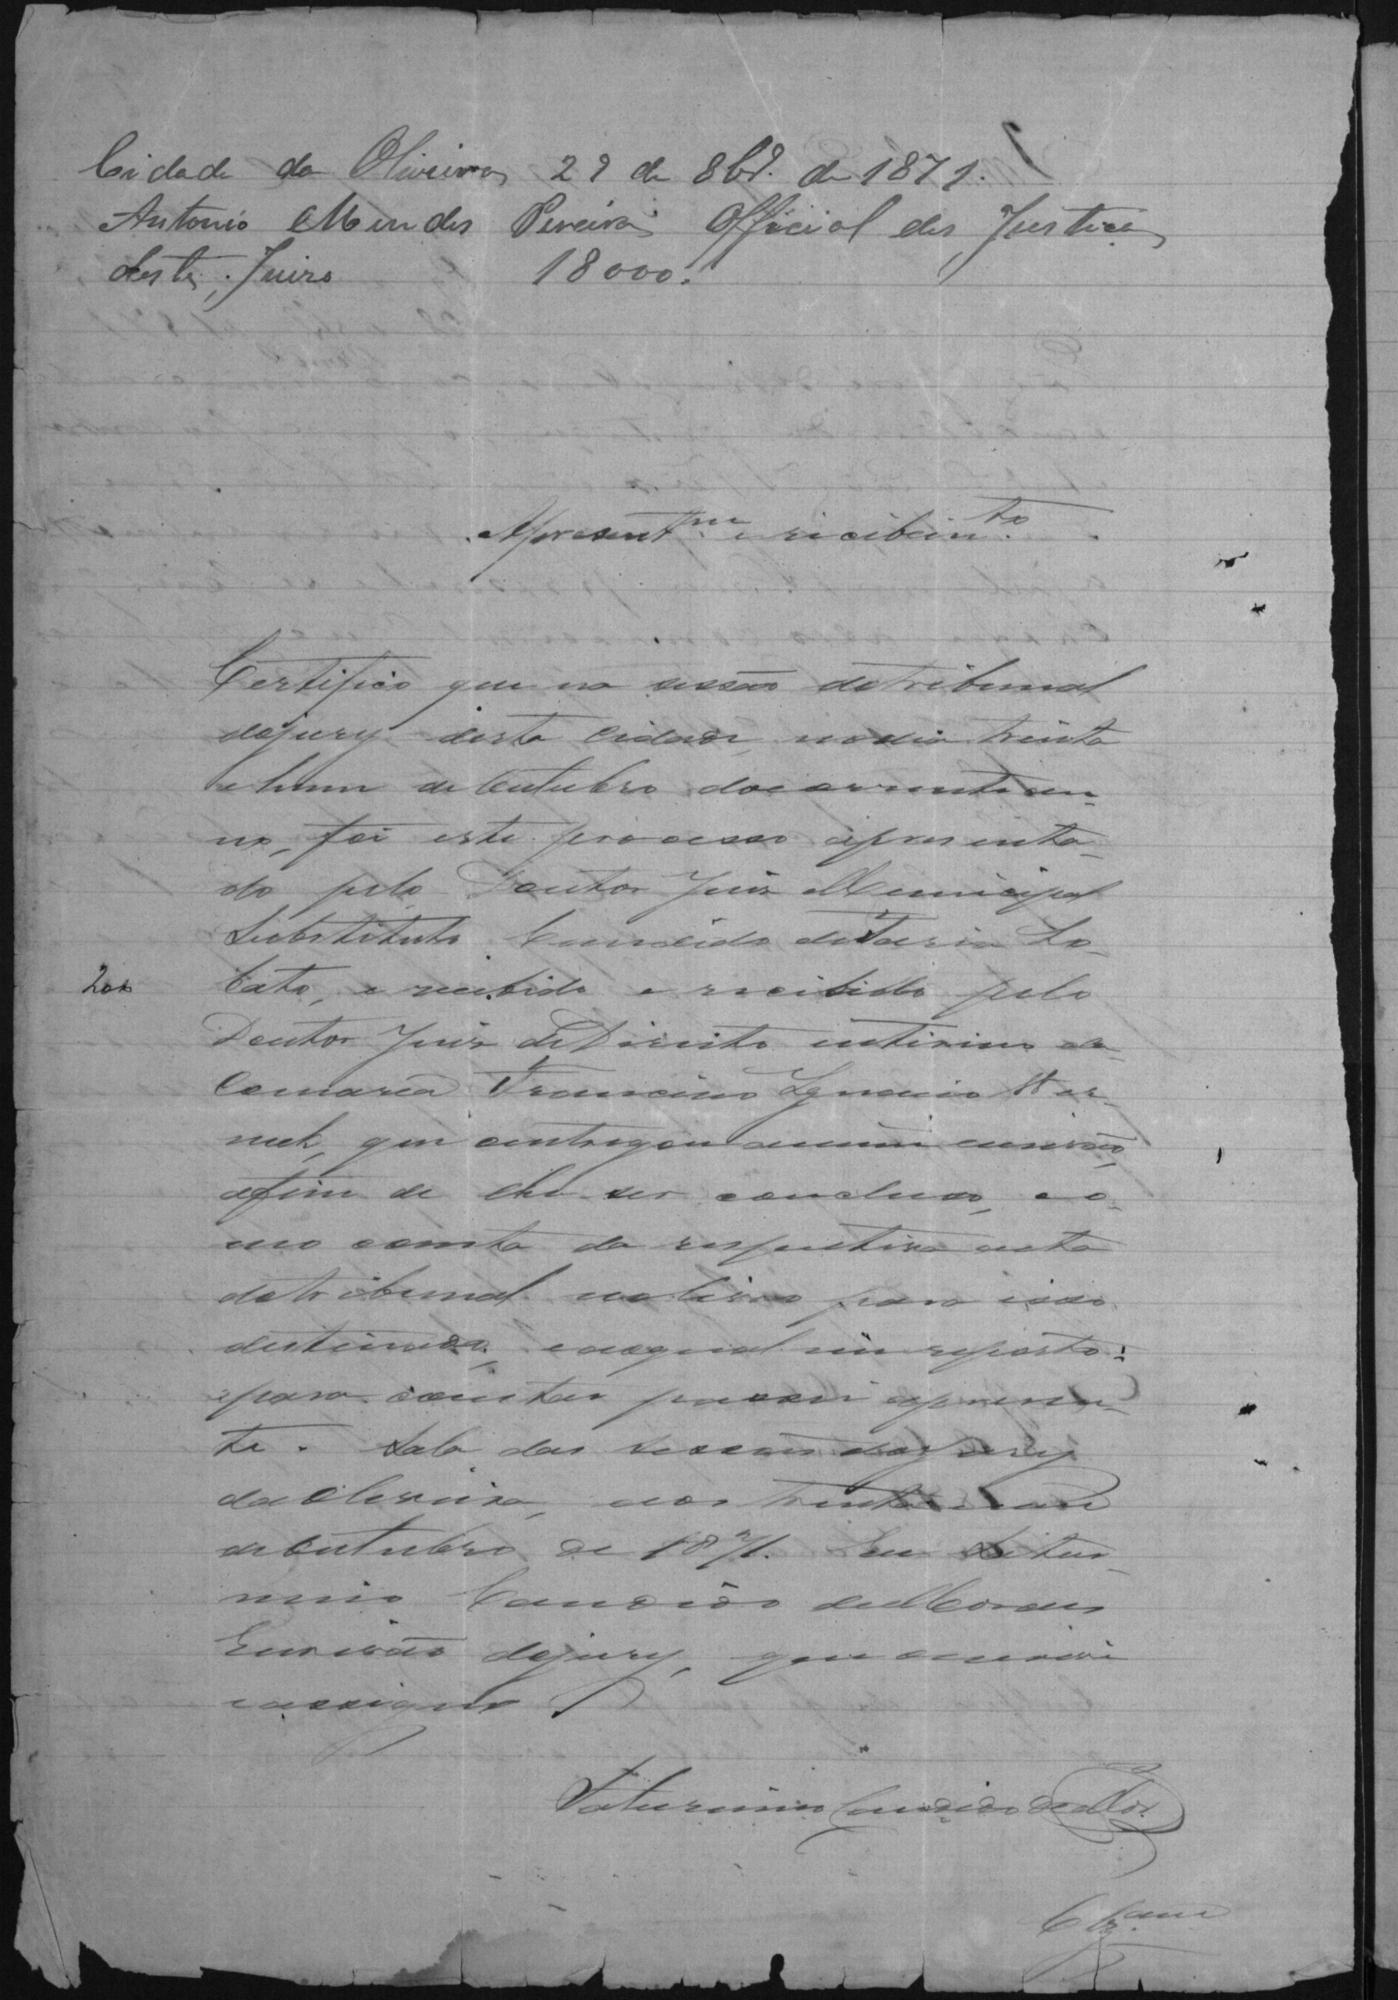 Cidade da Oliveira 28 de 8bro. de 1871.
Antonio Mendes Pereira Official de Justiça
deste Juizo 18000.
Apresentam. e recebim.to
Certifico que na sessão do tribunal
do jury desta cidade, no dia trinta
e hum de Outubro do corrente an-
no, foi este processo apresenta-
do pelo Doutor Juiz Municipal
Substituto Candido de Faria Lo-
200
bato, e recibido e recibido pelo
Doutor Juiz de Direito interino da
Comarca Francisco Ignacio Wer-
neck, que entregou a mim escrivão,
afim de lhe ser concluso, co-
mo consta da respectiva acta
do tribunal no livro para isso
destinado, e ao qual me reporto:
e para constar passei a presen-
te. Sala das sessões do jury
da Oliveira, aos trinta e hum
de Outubro de 1871. Eu Satur-
nino Candido de Moraes
Escrivão do jury, que escrevi
e assigno
Saturnino Candido de Mor.